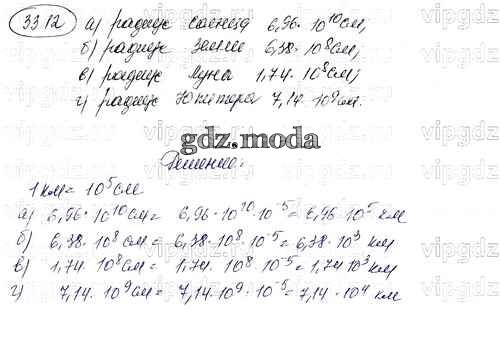 33.12
а) радиус солнца 6,96 · 10¹⁰ см,
б) радиус земли 6,38 · 10⁸ см,
в) радиус Луна 1,74 · 10⁸ см;
г) радиус Юпитера 7,14 · 10⁹ см.
gdz.moda
Решение:
1 км = 10⁵ см
а) 6,96 · 10¹⁰ см = 6,96 · 10¹⁰ · 10⁻⁵ = 6,96 · 10⁵ км
б) 6,38 · 10⁸ см = 6,38 · 10⁸ · 10⁻⁵ = 6,38 · 10³ км
в) 1,74 · 10⁸ см = 1,74 · 10⁸ · 10⁻⁵ = 1,74 10³ км
г) 7,14 · 10⁹ см = 7,14 · 10⁹ · 10⁻⁵ = 7,14 · 10⁴ км